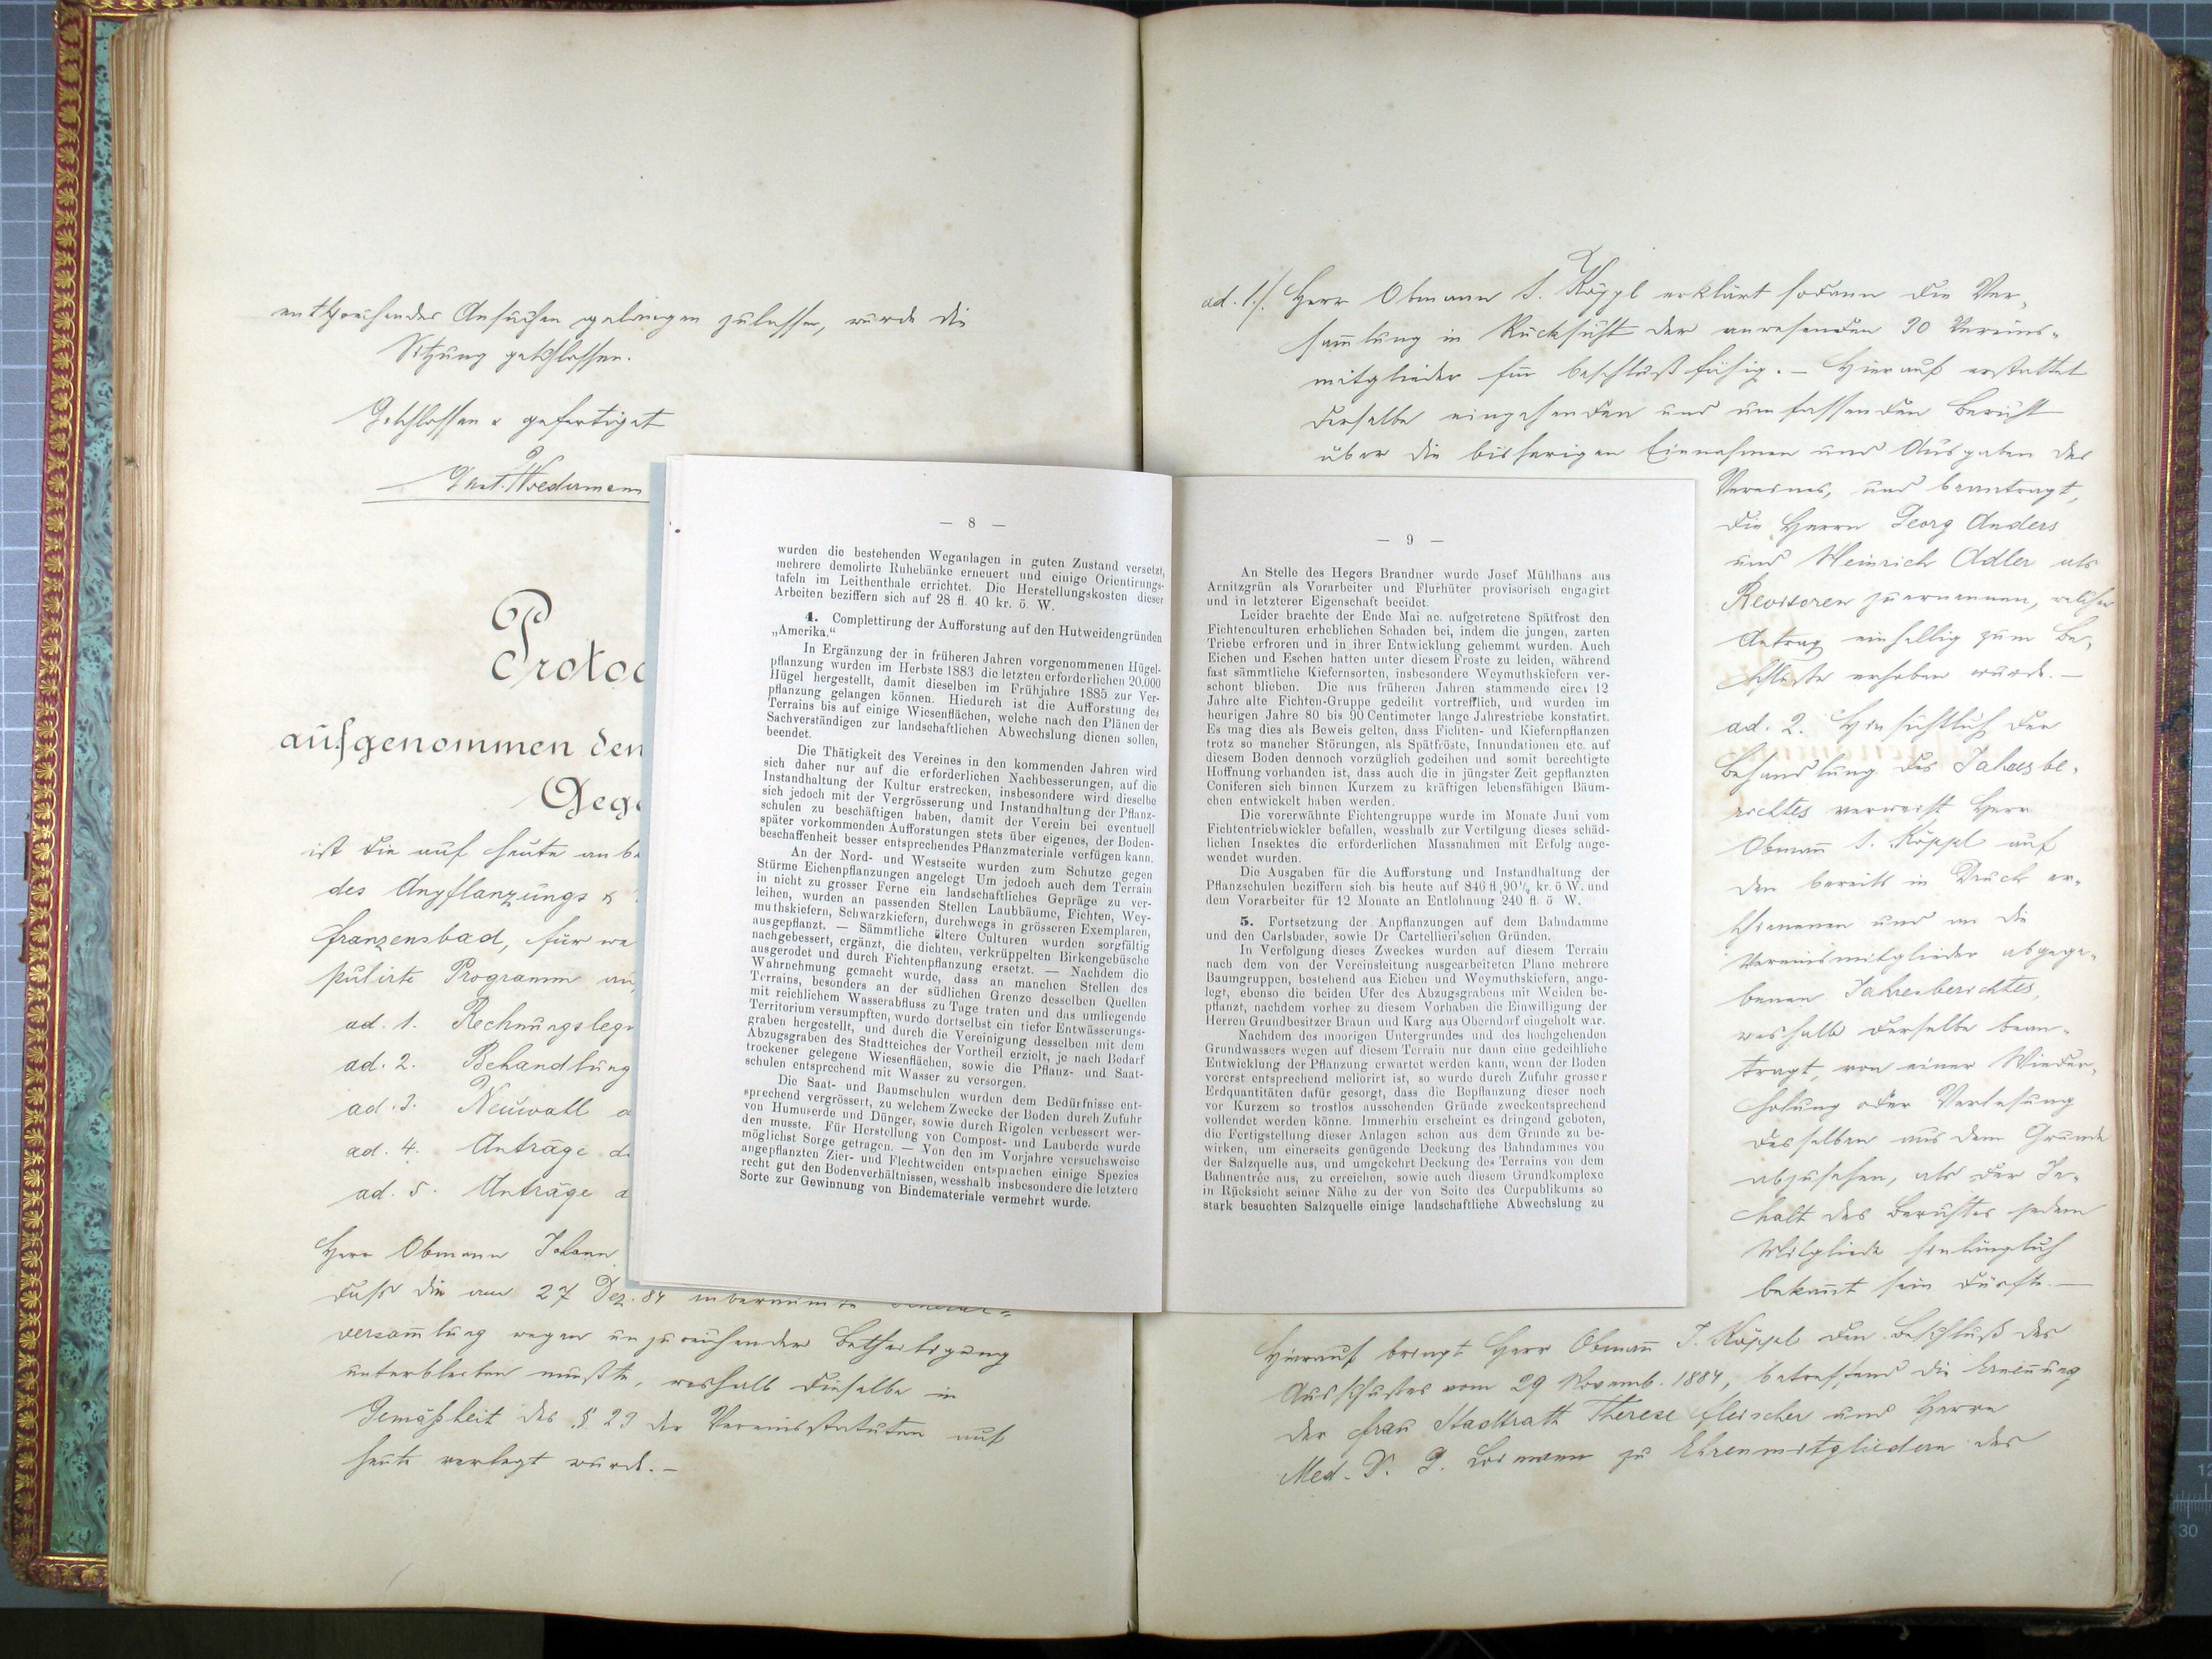 entsprechendes Ansuchen gelangen zulassen, wurde die
Sitzung geschlossen.
Geschlossen & gefertigt
Wiedermann
Protoc
aufgenommen den
Gege
ist die auf heute anbe
des Anpflanzungs &
Franzensbad, für we
pulirte Programm
ad. 1. Rechnungslegu
ad. 2. Behandlung
ad. 3. Neuwahl
ad. 4. Anträge d
ad. 5. Anträge d
Herr Obmann Johann
daß die am 27 Dez. 84 anberaumte General=
versam̄lung wegen unzureichender Betheiligung
unterbleiben mußte, weshalb dieselbe in
Gemäßheit des § 23 der Vereinsstatuten auf
heute verlegt wurde. –
— 8 —
wurden die bestehenden Weganlagen in guten Zustand versetzt,
mehrere demolirte Ruhebänke erneuert und einige Orientirungs-
tafeln im Leithenthale errichtet. Die Herstellungskosten dieser
Arbeiten beziffern sich auf 28 fl. 40 kr. ö. W.
4. Complettirung der Aufforstung auf den Hutweidengründen
„Amerika.“
In Ergänzung der in früheren Jahren vorgenommenen Hügel-
pflanzung wurden im Herbste 1883 die letzten erforderlichen 20.000
Hügel hergestellt, damit dieselben im Frühjahre 1885 zur Ver-
pflanzung gelangen können. Hiedurch ist die Aufforstung des
Terrains bis auf einige Wiesenflächen, welche nach den Plänen der
Sachverständigen zur landschaftlichen Abwechslung dienen sollen,
beendet.
Die Thätigkeit des Vereines in den kommenden Jahren wird
sich daher nur auf die erforderlichen Nachbesserungen, auf die
Instandhaltung der Kultur erstrecken, insbesondere wird dieselbe
sich jedoch mit der Vergrösserung und Instandhaltung der Pflanz-
schulen zu beschäftigen haben, damit der Verein bei eventuell
später vorkommenden Aufforstungen stets über eigenes, der Boden-
beschaffenheit besser entsprechendes Pflanzmateriale verfügen kann.
An der Nord- und Westseite wurden zum Schutze gegen
Stürme Eichenpflanzungen angelegt Um jedoch auch dem Terrain
in nicht zu grosser Ferne ein landschaftliches Gepräge zu ver-
leihen, wurden an passenden Stellen Laubbäume, Fichten, Wey-
muthskiefern, Schwarzkiefern, durchwegs in grösseren Exemplaren,
ausgepflanzt. — Sämmtliche ältere Culturen wurden sorgfältig
nachgebessert, ergänzt, die dichten, verkrüppelten Birkengebüsche
ausgerodet und durch Fichtenpflanzung ersetzt. — Nachdem die
Wahrnehmung gemacht wurde, dass an manchen Stellen des
Terrains, besonders an der südlichen Grenze desselben Quellen
mit reichlichem Wasserabfluss zu Tage traten und das umliegende
Territorium versumpften, wurde dortselbst ein tiefer Entwässerungs-
graben hergestellt, und durch die Vereinigung desselben mit dem
Abzugsgraben des Stadtteiches der Vortheil erzielt, je nach Bedarf
trockener gelegene Wiesenflächen, sowie die Pflanz- und Saat-
schulen entsprechend mit Wasser zu versorgen.
Die Saat- und Baumschulen wurden dem Bedürfnisse ent-
sprechend vergrössert, zu welchem Zwecke der Boden durch Zufuhr
von Humuserde und Dünger, sowie durch Rigolen verbessert wer-
den musste. Für Herstellung von Compost- und Lauberde wurde
möglichst Sorge getragen. — Von den im Vorjahre versuchsweise
angepflanzten Zier- und Flechtweiden entsprachen einige Spezies
recht gut den Bodenverhältnissen, wesshalb insbesondere die letztere
Sorte zur Gewinnung von Bindemateriale vermehrt wurde.
— 9 —
An Stelle des Hegers Brandner wurde Josef Mühlhans aus
Arnitzgrün als Vorarbeiter und Flurhüter provisorisch engagirt
und in letzterer Eigenschaft beeidet.
Leider brachte der Ende Mai ac. aufgetretene Spätfrost den
Fichtenculturen erheblichen Schaden bei, indem die jungen, zarten
Triebe erfroren und in ihrer Entwicklung gehemmt wurden. Auch
Eichen und Eschen hatten unter diesem Froste zu leiden, während
fast sämmtliche Kiefernsorten, insbesondere Weymuthskiefern ver-
schont blieben. Die aus früheren Jahren stammende circa 12
Jahre alte Fichten-Gruppe gedeiht vortrefflich, und wurden im
heurigen Jahre 80 bis 90 Centimeter lange Jahrestriebe konstatirt.
Es mag dies als Beweis gelten, dass Fichten- und Kiefernpflanzen
trotz so mancher Störungen, als Spätfröste, Innundationen etc. auf
diesem Boden dennoch vorzüglich gedeihen und somit berechtigte
Hoffnung vorhanden ist, dass auch die in jüngster Zeit gepflanzten
Coniferen sich binnen Kurzem zu kräftigen lebensfähigen Bäum-
chen entwickelt haben werden.
Die vorerwähnte Fichtengruppe wurde im Monate Juni vom
Fichtentriebwickler befallen, wesshalb zur Vertilgung dieses schäd-
lichen Insektes die erforderlichen Massnahmen mit Erfolg ange-
wendet wurden.
Die Ausgaben für die Aufforstung und Instandhaltung der
Pflanzschulen beziffern sich bis heute auf 846 fl ,90½ kr. ö W. und
dem Vorarbeiter für 12 Monate an Entlohnung 240 fl. ö W.
5. Fortsetzung der Anpflanzungen auf dem Bahndamme
und den Carlsbader, sowie Dr Cartellieri'schen Gründen.
In Verfolgung dieses Zweckes wurden auf diesem Terrain
nach dem von der Vereinsleitung ausgearbeiteten Plane mehrere
Baumgruppen, bestehend aus Eichen und Weymuthskiefern, ange-
legt, ebenso die beiden Ufer des Abzugsgrabens mit Weiden be-
pflanzt, nachdem vorher zu diesem Vorhaben die Einwilligung der
Herren Grundbesitzer Braun und Karg aus Oberndorf eingeholt war.
Nachdem des moorigen Untergrundes und des hochgehenden
Grundwassers wegen auf diesem Terrain nur dann eine gedeihliche
Entwicklung der Pflanzung erwartet werden kann, wenn der Boden
vorerst entsprechend meliorirt ist, so wurde durch Zufuhr grosser
Erdquantitäten dafür gesorgt, dass die Bepflanzung dieser noch
vor Kurzem so trostlos aussehenden Gründe zweckentsprechend
vollendet werden könne. Immerhin erscheint es dringend geboten,
die Fertigstellung dieser Anlagen schon aus dem Grunde zu be-
wirken, um einerseits genügende Deckung des Bahndammes von
der Salzquelle aus, und umgekehrt Deckung des Terrains von dem
Bahnentrée aus, zu erreichen, sowie auch diesem Grundkomplexe
in Rücksicht seiner Nähe zu der von Seite des Curpublikums so
stark besuchten Salzquelle einige landschaftliche Abwechslung zu
ad. 1./. Herr Obmann J. Köppl erklärt sodann die Ver=
sam̄lung in Rücksicht der anwesenden 30 Vereins=
mitglieder für beschlußfähig. – Hierauf erstattet
derselbe eingehenden und umfassenden Bericht
über die bisherigen Einnahmen und Ausgaben des
Vereines, und beantragt,
die Herrn Georg Anders
und Heinrich Adler als
Revisoren zu ernennen, welcher
Antrag einhellig zum Be=
schlusse erhoben wurde. –
ad. 2. Hinsichtlich der
Behandlung des Jahresbe=
richtes verweist Herr
Obmañ J. Köppl auf
den bereits in Druck er=
schienenen und an die
Vereinsmitglieder abgege=
benen Jahresberichtes,
weshalb derselbe bean=
tragt, von einer Wieder=
holung oder Verlesung
desselben aus dem Grunde
abzusehen, als der In=
halt des Berichtes jedem
Mitgliede hinlänglich
bekan̄t sein dürfte. —
Hierauf bringt Herr Obmañ J. Köppl den Beschluß des
Ausschußes vom 29 Novemb. 1884, betreffend die Ernen̄ung
der Frau Stadtrath Therese Fleischer und Herrn
Med. Dr. G. Loimann zu Ehrenmitgliedern des
30